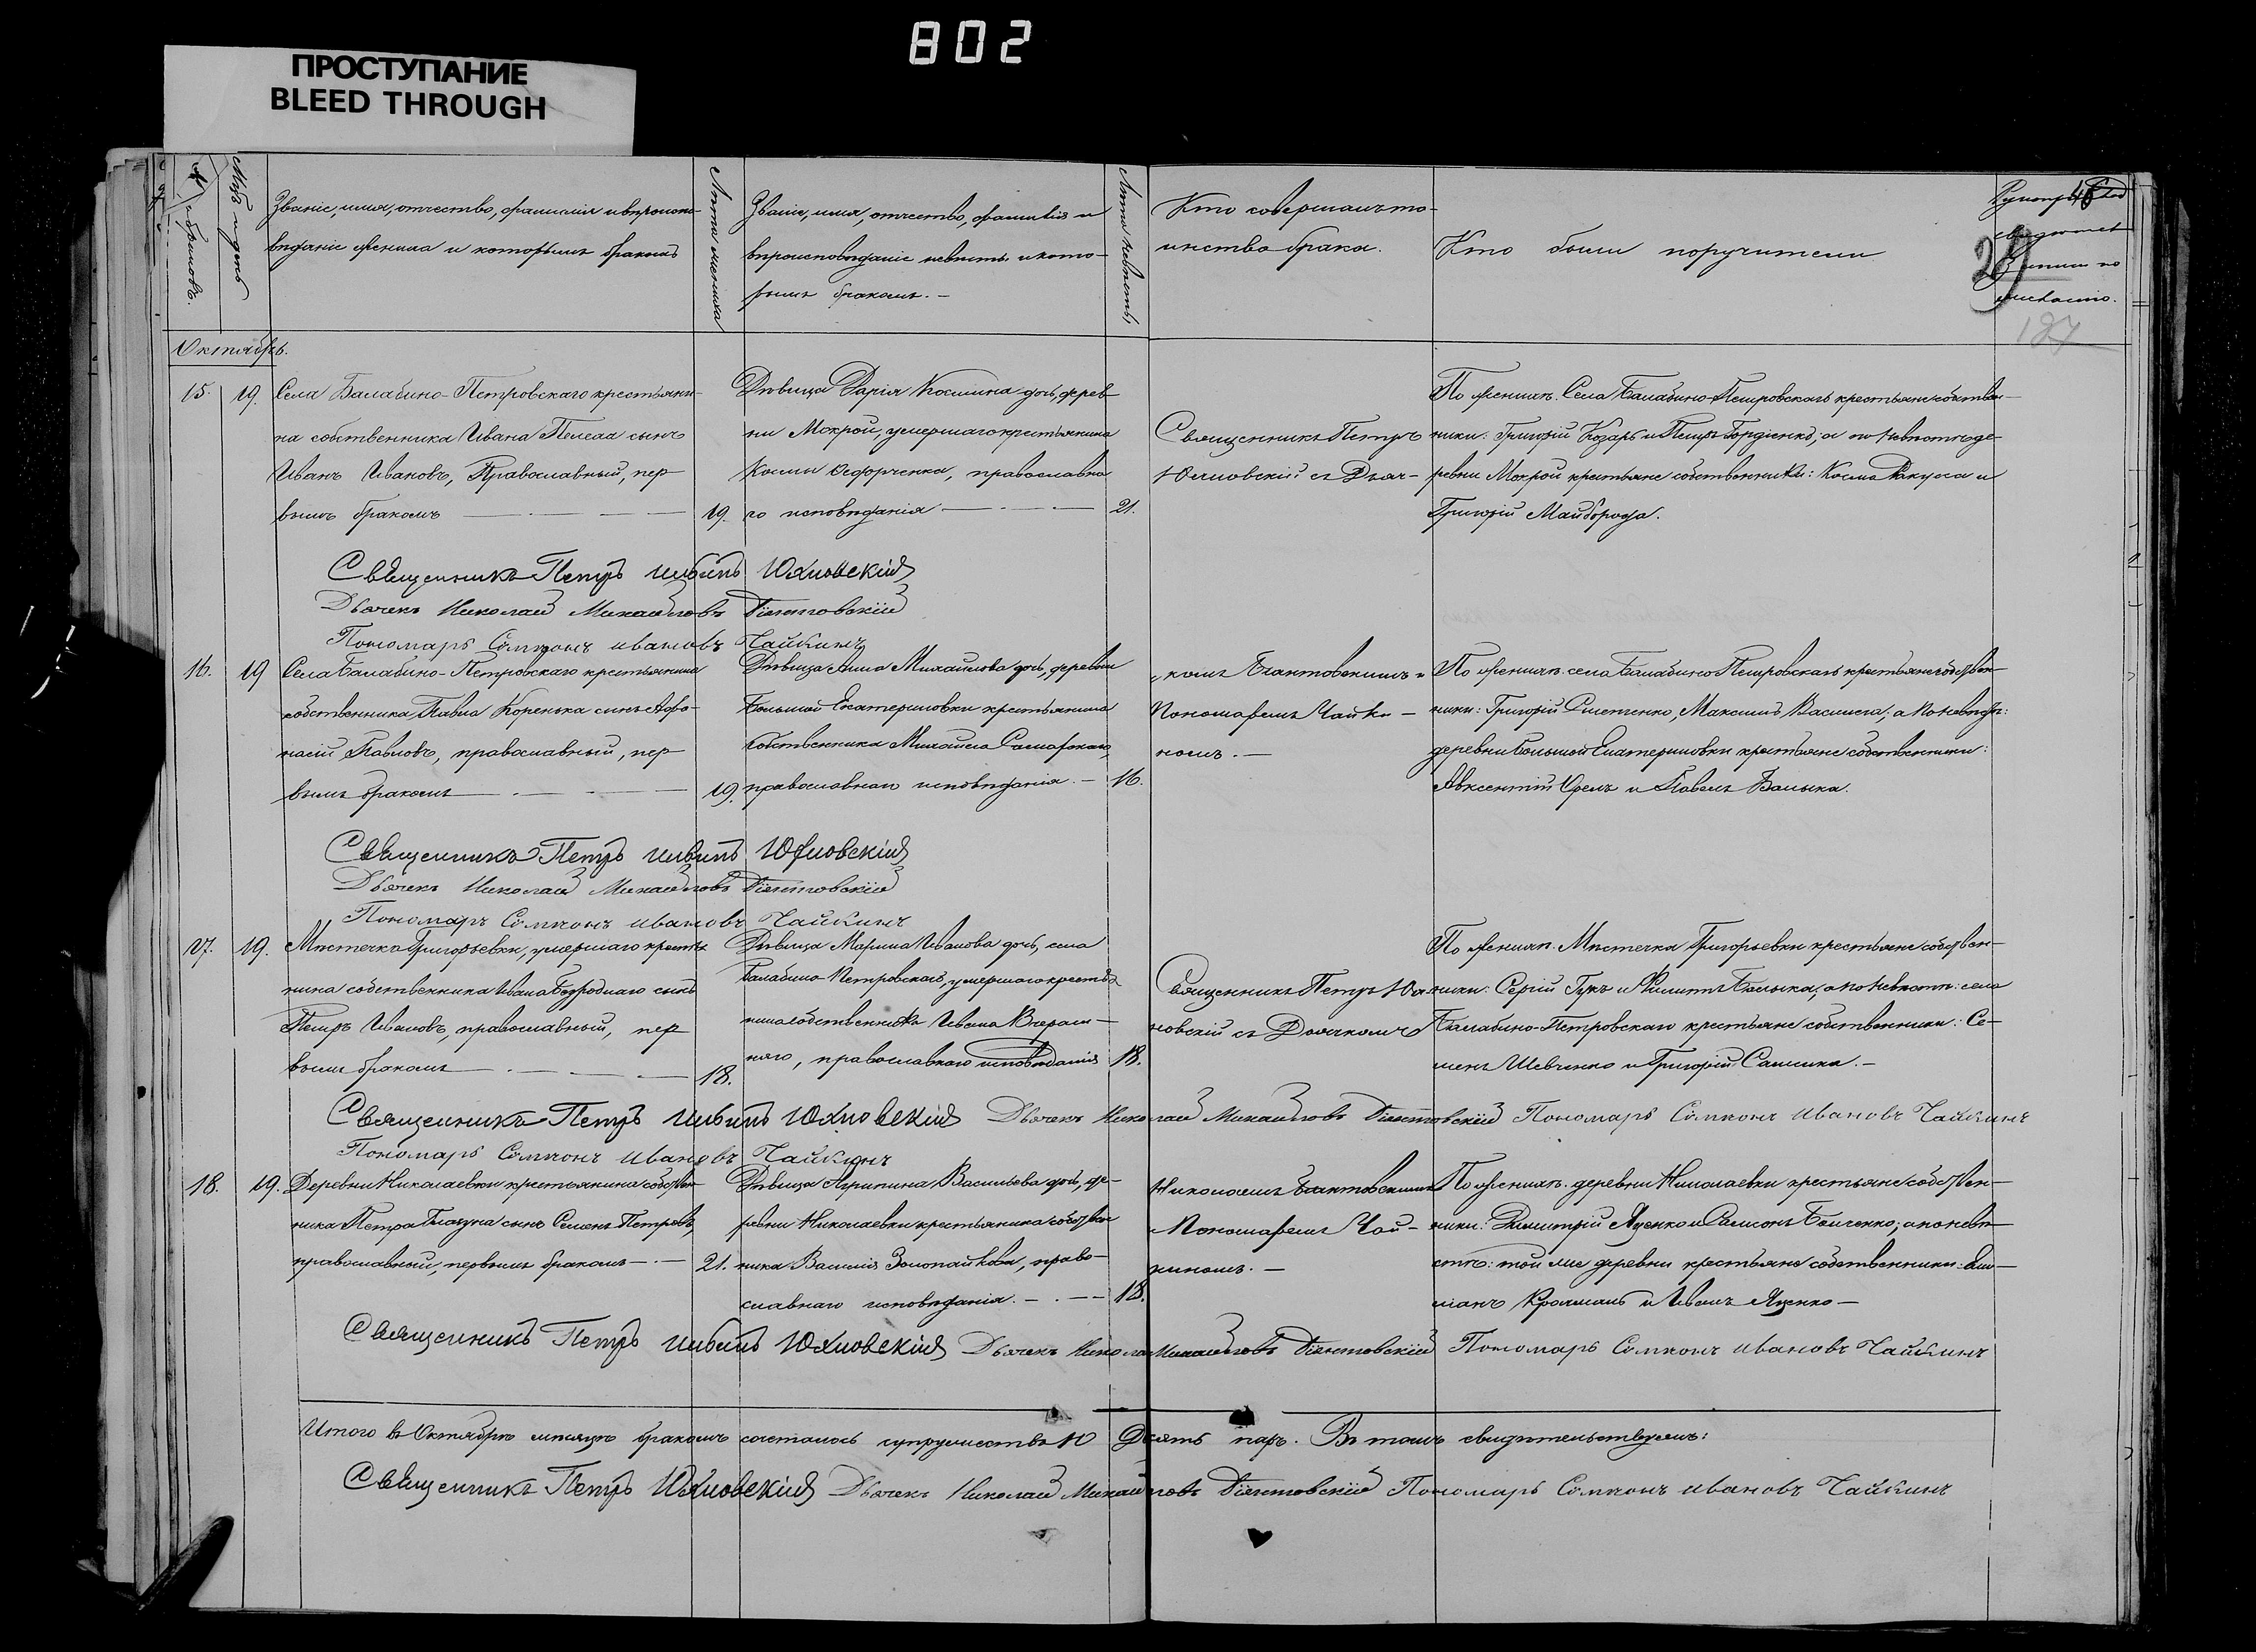 802
ПРОСТУПАНИЕ
BLEED THROUGH
Мѣс и день
Званіе, имя, отчество, фамилія и вѣроиспо-
вѣданіе жениха и которымъ бракомъ
Лѣта жениха
Званіе, имя, отчество, фамилія и
вѣроисповѣданіе невѣсты и кото-
рымъ бракомъ. —
Лѣта невѣсты
Кто совершалъ та-
инство брака.
Кто были поручители
187
Октябрь.
15. 19. Села Балабино-Петровскаго крестьяни-
на собственника Ивана сынъ
Иванъ Ивановъ, Православный, пер
вымъ бракомъ — 19.
Дѣвица Дарія Космина дочь, дерев
ни Мокрой, умершаго крестьянина
Космы Федорченка, православна
го исповѣданія — 21.
Священникъ Петръ
Юхновскій съ Дьяч-
По женихѣ: Села Балабино-Петровскаго крестьяне собствен-
ники: Григорій Козарь и Петръ Гордіенко; а по невѣстѣ де-
ревни Мокрой крестьяне собственники: Косма Ракуса и
Григорій Майборода.
Священникъ Петръ Юхновскій
Дьячекъ Николай Михайловъ
Пономарь Ивановъ Чайкинъ
16. 19 Села Балабино-Петровскаго крестьянина
собственника Павла Коренька сынъ Афо-
насій Павловъ, православный, пер
вымъ бракомъ — 19.
Дѣвица Анна Михайлова дочь, деревни
Большой Екатериновки крестьянина
собственника Михаила Самарскаго,
православнаго исповѣданія. — 16.
комъ и
Пономаремъ Чайки-
номъ. —
По женихѣ: села Балабино Петровскаго крестьяне собствен
ники: Григорій Максимъ а по невѣстѣ:
деревни Большой Екатериновки крестьяне собственники:
Авксентій Орелъ и Павелъ Балыка.
Священникъ Петръ Юхновскій
Дьячекъ Николай Михайловъ
Пономарь Ивановъ Чайкинъ
17. 19. Мѣстечка Григорьевки, умершаго крестья
нина собственника Ивана Безроднаго сынъ
Петръ Ивановъ, православный, пер
вымъ бракомъ — 18.
Дѣвица Марина Иванова дочь, села
Балабино-Петровскаго, умершаго крестья
нина собственника Ивана Вчераш-
няго, православнаго исповѣданія 18.
Священникъ Петръ Юх
новскій съ Дьячкомъ
По женихѣ: Мѣстечка Григорьевки крестьяне собствен-
ники: Сергій Гукъ и Филиппъ Балыка; а по невѣстѣ: села
Балабино-Петровскаго крестьяне собственники: Се-
менъ Шевченко и Григорій —
Священникъ Петръ Юхновскій Дьячекъ Николай Михайловъ Пономарь Ивановъ Чайкинъ
Пономарь Ивановъ Чайкинъ
18. 19. Деревни Николаевки крестьянина собствен
ника Петра сынъ Семенъ Петровъ,
православный, первымъ бракомъ — 21.
Дѣвица Агрипина Васильева дочь, де-
ревни Николаевки крестьянина собствен
ника Василія право-
славнаго исповѣданія. — 18.
Николаемъ
Пономаремъ Чай-
киномъ. —
По женихѣ: деревни Николаевки крестьяне собствен-
ники: Димитрій Яценко и Бойченко; а по невѣ
стѣ: той же деревни крестьяне собственники:
и Иванъ Яценко —
Священникъ Петръ Юхновскій Дьячекъ Николай Михайловъ Пономарь Ивановъ Чайкинъ
Итого въ Октябрѣ мѣсяцѣ бракомъ сочеталось супружествъ 10 Десять паръ. Въ томъ свидѣтельствуемъ:
Священникъ Петръ Юхновскій Дьячекъ Николай Михайловъ Пономарь Ивановъ Чайкинъ